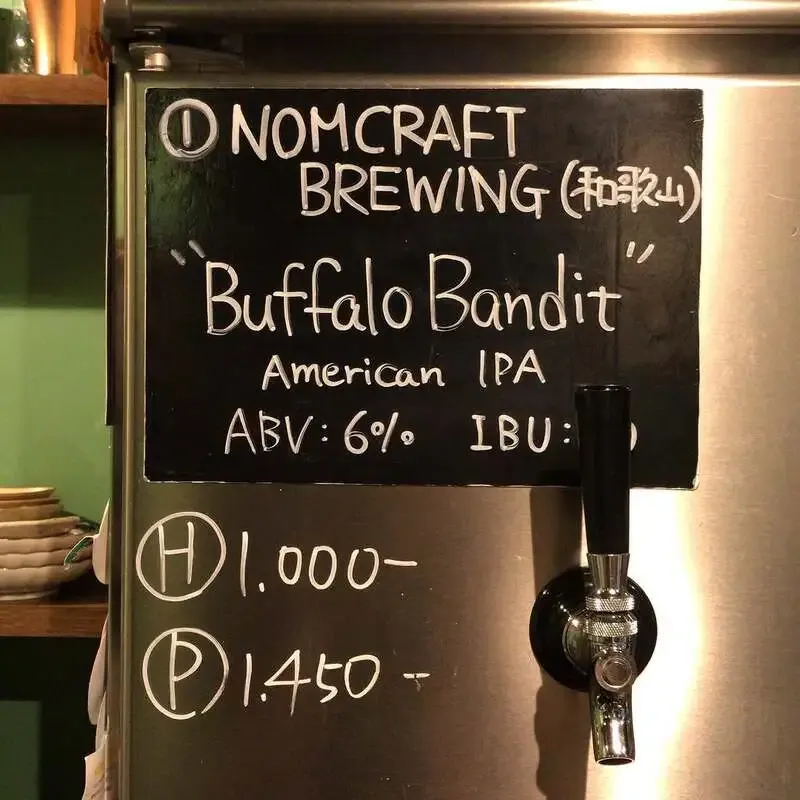 ① NOMCRAFT
BREWING (和歌山)
"Buffalo Bandit"
American IPA
ABV: 6% IBU:
Ⓗ 1.000-
Ⓟ 1.450-